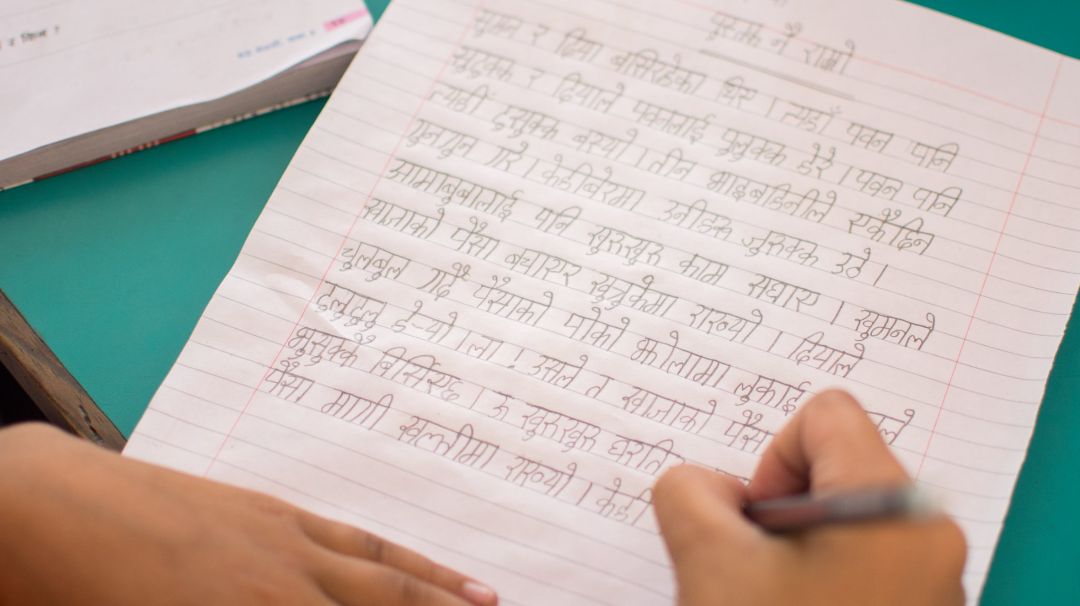 र किन ?
पुस्तक नै साथी
सुमन र दिया बसिरहेका थिए । त्यहाँ पवन पनि
सुटुक्क र दियाले पवनलाई प्रुलुक्क हेरे । पवन पनि
त्यहीँ टुसुक्क बस्यो । तीन भाइबहिनीले एकैछिन
गुनगुन गरे । केहीबेरमा उनीहरू जुरुक्क उठे ।
आमाबुबालाई पनि सुरुखुरु काम सघाए । सुमनले
खाजाको पैसा बचाएर खुत्रुकेमा राख्यो । दियाले
चुलबुल गर्दै पैसाको पोको झोलामा लुकाई
टुलुटुलु हेर्‍यो । ला ! उसले त खाजाको पैसा
भुसुक्कै बिर्सिएछ । ऊ खुरुखुरु घरति
पैसा मागी खल्तीमा राख्यो । केही